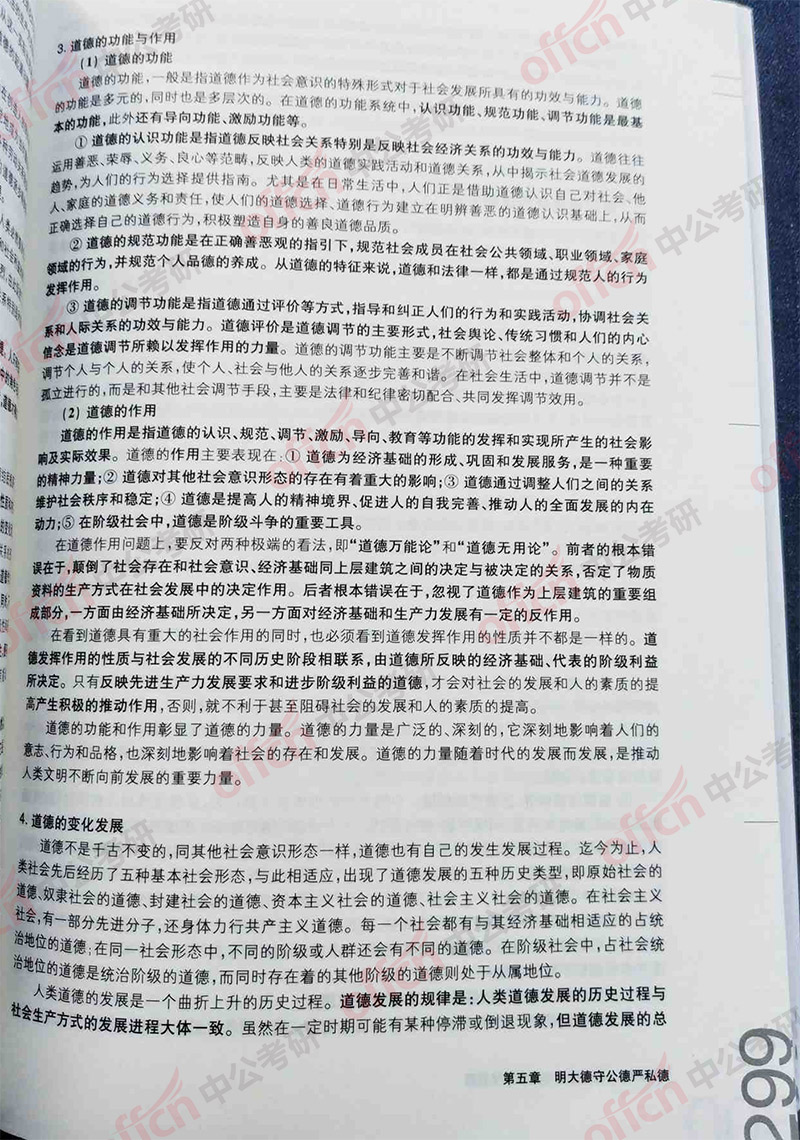 3. 道德的功能与作用
(1) 道德的功能
道德的功能,一般是指道德作为社会意识的特殊形式对于社会发展所具有的功效与能力。道德
的功能是多元的,同时也是多层次的。在道德的功能系统中,认识功能、规范功能、调节功能是最基
本的功能,此外还有导向功能、激励功能等。
① 道德的认识功能是指道德反映社会关系特别是反映社会经济关系的功效与能力。道德往往
运用善恶、荣辱、义务、良心等范畴,反映人类的道德实践活动和道德关系,从中揭示社会道德发展的
趋势,为人们的行为选择提供指南。尤其是在日常生活中,人们正是借助道德认识自己对社会、他
人、家庭的道德义务和责任,使人们的道德选择、道德行为建立在明辨善恶的道德认识基础上,从而
正确选择自己的道德行为,积极塑造自身的善良道德品质。
② 道德的规范功能是在正确善恶观的指引下,规范社会成员在社会公共领域、职业领域、家庭
领域的行为,并规范个人品德的养成。从道德的特征来说,道德和法律一样,都是通过规范人的行为
发挥作用。
③ 道德的调节功能是指道德通过评价等方式,指导和纠正人们的行为和实践活动,协调社会关
系和人际关系的功效与能力。道德评价是道德调节的主要形式,社会舆论、传统习惯和人们的内心
信念是道德调节所赖以发挥作用的力量。道德的调节功能主要是不断调节社会整体和个人的关系,
调节个人与个人的关系,使个人、社会与他人的关系逐步完善和谐。在社会生活中,道德调节并不是
孤立进行的,而是和其他社会调节手段,主要是法律和纪律密切配合、共同发挥调节效用。
(2) 道德的作用
道德的作用是指道德的认识、规范、调节、激励、导向、教育等功能的发挥和实现所产生的社会影
响及实际效果。道德的作用主要表现在:① 道德为经济基础的形成、巩固和发展服务,是一种重要
的精神力量;② 道德对其他社会意识形态的存在有着重大的影响;③ 道德通过调整人们之间的关系
维护社会秩序和稳定;④ 道德是提高人的精神境界、促进人的自我完善、推动人的全面发展的内在
动力;⑤ 在阶级社会中,道德是阶级斗争的重要工具。
在道德作用问题上,要反对两种极端的看法,即“道德万能论”和“道德无用论”。前者的根本错
误在于,颠倒了社会存在和社会意识、经济基础同上层建筑之间的决定与被决定的关系,否定了物质
资料的生产方式在社会发展中的决定作用。后者根本错误在于,忽视了道德作为上层建筑的重要组
成部分,一方面由经济基础所决定,另一方面对经济基础和生产力发展有一定的反作用。
在看到道德具有重大的社会作用的同时,也必须看到道德发挥作用的性质并不都是一样的。道
德发挥作用的性质与社会发展的不同历史阶段相联系,由道德所反映的经济基础、代表的阶级利益
所决定。只有反映先进生产力发展要求和进步阶级利益的道德,才会对社会的发展和人的素质的提
高产生积极的推动作用,否则,就不利于甚至阻碍社会的发展和人的素质的提高。
道德的功能和作用彰显了道德的力量。道德的力量是广泛的、深刻的,它深刻地影响着人们的
意志、行为和品格,也深刻地影响着社会的存在和发展。道德的力量随着时代的发展而发展,是推动
人类文明不断向前发展的重要力量。
4. 道德的变化发展
道德不是千古不变的,同其他社会意识形态一样,道德也有自己的发生发展过程。迄今为止,人
类社会先后经历了五种基本社会形态,与此相适应,出现了道德发展的五种历史类型,即原始社会的
道德、奴隶社会的道德、封建社会的道德、资本主义社会的道德、社会主义社会的道德。在社会主义
社会,有一部分先进分子,还身体力行共产主义道德。每一个社会都有与其经济基础相适应的占统
治地位的道德;在同一社会形态中,不同的阶级或人群还会有不同的道德。在阶级社会中,占社会统
治地位的道德是统治阶级的道德,而同时存在着的其他阶级的道德则处于从属地位。
人类道德的发展是一个曲折上升的历史过程。道德发展的规律是:人类道德发展的历史过程与
社会生产方式的发展进程大体一致。虽然在一定时期可能有某种停滞或倒退现象,但道德发展的总
第五章 明大德守公德严私德
299
offcn 中公考研